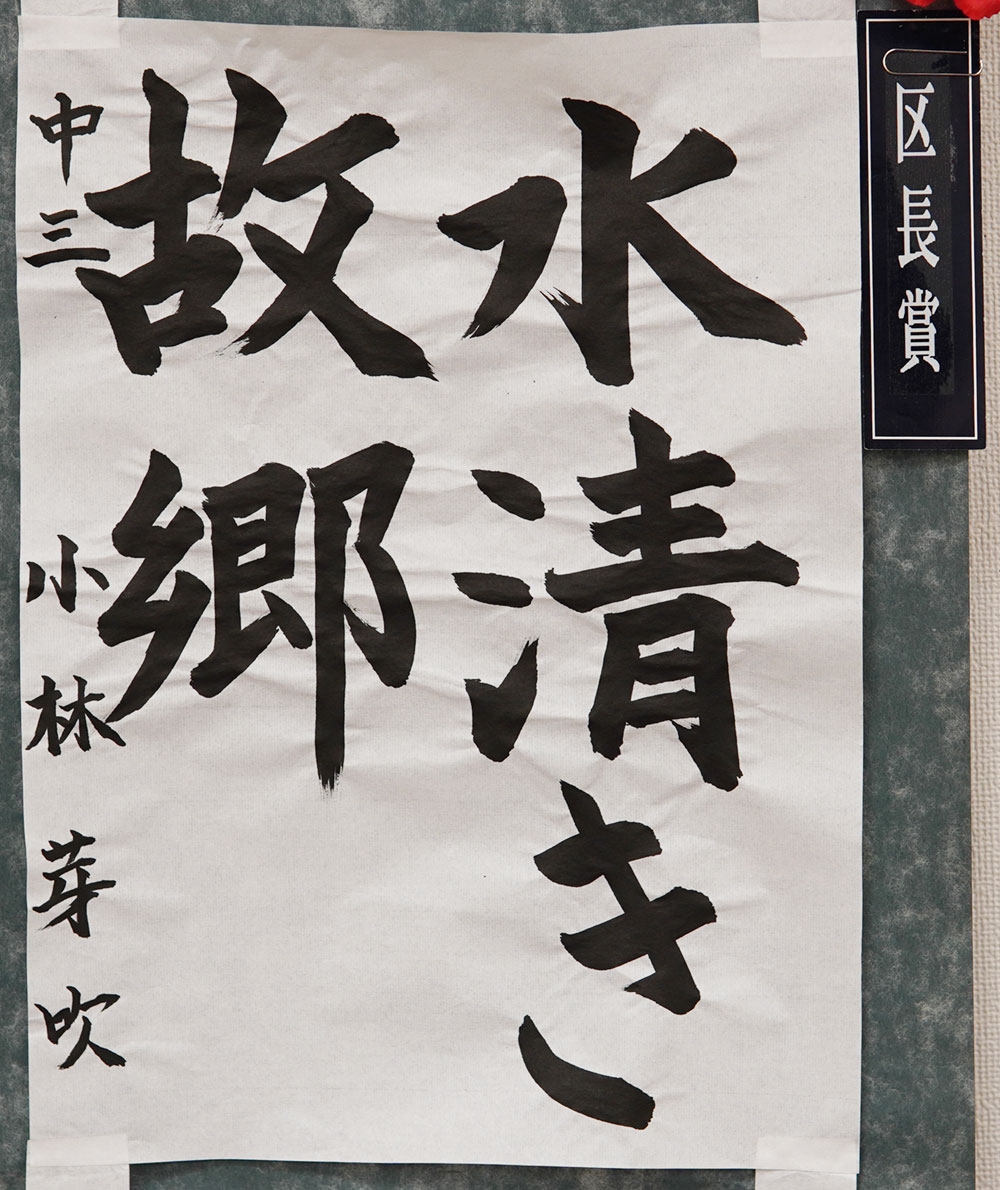 区長賞
水清き
故郷
中三 小林芽吹